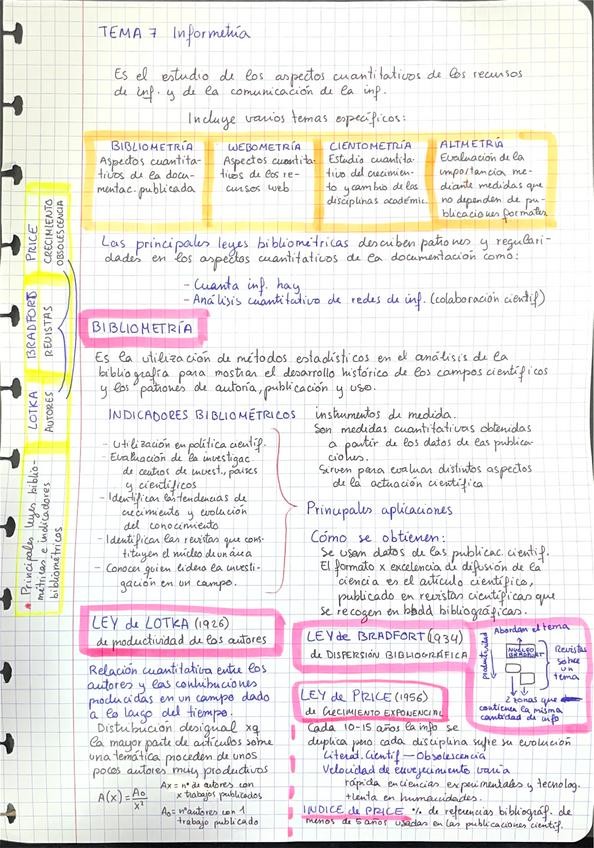 TEMA 7 Informetría
Es el estudio de los aspectos cuantitativos de los recursos
de inf. y de la comunicación de la inf.
Incluye varios temas específicos:
BIBLIOMETRÍA
Aspectos cuantita-
tivos de la docu-
mentac. publicada
WEBOMETRÍA
Aspectos cuantita-
tivos de los re-
cursos web
CIENTOMETRÍA
Estudio cuantita-
tivo del crecimien-
to y cambio de las
disciplinas académic.
ALTMETRÍA
Evaluación de la
importancia me-
diante medidas que
no dependen de pu-
blicaciones formales
Las principales leyes bibliométricas describen patrones y regulari-
dades en los aspectos cuantitativos de la documentación como:
- Cuanta inf. hay
- Análisis cuantitativo de redes de inf. (colaboración científ)
PRICE
CRECIMIENTO
OBSOLESCENCIA
BRADFORT
REVISTAS
LOTKA
AUTORES
* Principales leyes biblio-
métricas e indicadores
bibliométricos
BIBLIOMETRÍA
Es la utilización de métodos estadísticos en el análisis de la
bibliografía para mostrar el desarrollo histórico de los campos científicos
y los patrones de autoría, publicación y uso.
INDICADORES BIBLIOMÉTRICOS
instrumentos de medida.
Son medidas cuantitativas obtenidas
a partir de los datos de las publica-
ciones.
Sirven para evaluar distintos aspectos
de la actuación científica
- Utilización en política científ.
- Evaluación de la investigac.
de centros de invest., países
y científicos
- Identificar las tendencias de
crecimiento y evolución
del conocimiento
- Identificar las revistas que cons-
tituyen el núcleo de un área
- Conocer quien lidera la investi-
gación en un campo.
Principales aplicaciones
Cómo se obtienen:
Se usan datos de las publicac. científ.
El formato x excelencia de difusión de la
ciencia es el artículo científico,
publicado en revistas científicas que
se recogen en bbdd bibliográficas.
LEY de LOTKA (1926)
de productividad de los autores
Relación cuantitativa entre los
autores y las contribuciones
producidas en un campo dado
a lo largo del tiempo.
Distribución desigual xq
la mayor parte de artículos sobre
una temática proceden de unos
pocos autores muy productivos
A(x) = Ao / x²
Ax = nº de autores con
x trabajos publicados
Ao = nº autores con 1
trabajo publicado
LEY de BRADFORT (1934)
de DISPERSIÓN BIBLIOGRÁFICA
Abordan el tema
productividad
NÚCLEO
BRADFORT
Revistas
sobre
un
tema
2 zonas que
contienen la misma
cantidad de info
LEY de PRICE (1956)
de CRECIMIENTO EXPONENCIAL
Cada 10-15 años la info se
duplica pero cada disciplina sufre su evolución
Literat. Científ — Obsolescencia
Velocidad de envejecimiento varía
rápida en ciencias experimentales y tecnolog.
+ lenta en humanidades.
INDICE de PRICE % de referencias bibliográf. de
menos de 5 años usadas en las publicaciones científ.